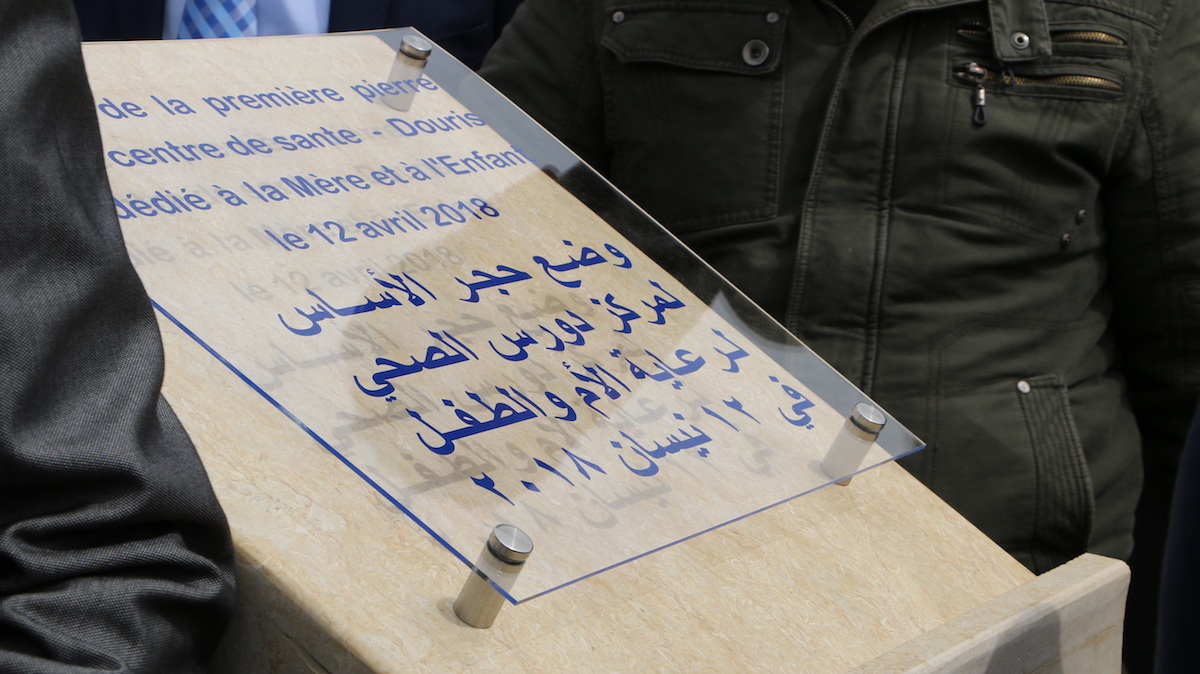 de la première pierre
centre de sante - Douris
dédié à la Mère et à l'Enfant
le 12 avril 2018
وضع حجر الأساس
لمركز دورس الصحي
لرعاية الأم والطفل
في ١٢ نيسان ٢٠١٨